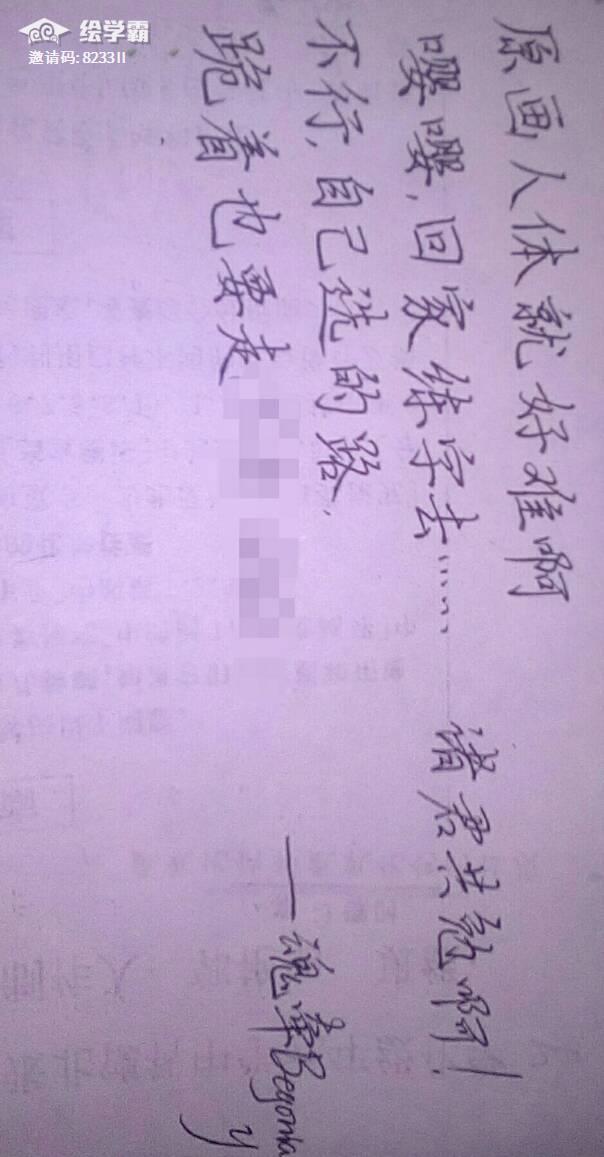 绘学霸
邀请码:8233II
原画人体就好难啊
嘤嘤,回家练字去……
诸君共勉啊!
不行,自己选的路,
跪着也要走
Begonia
y